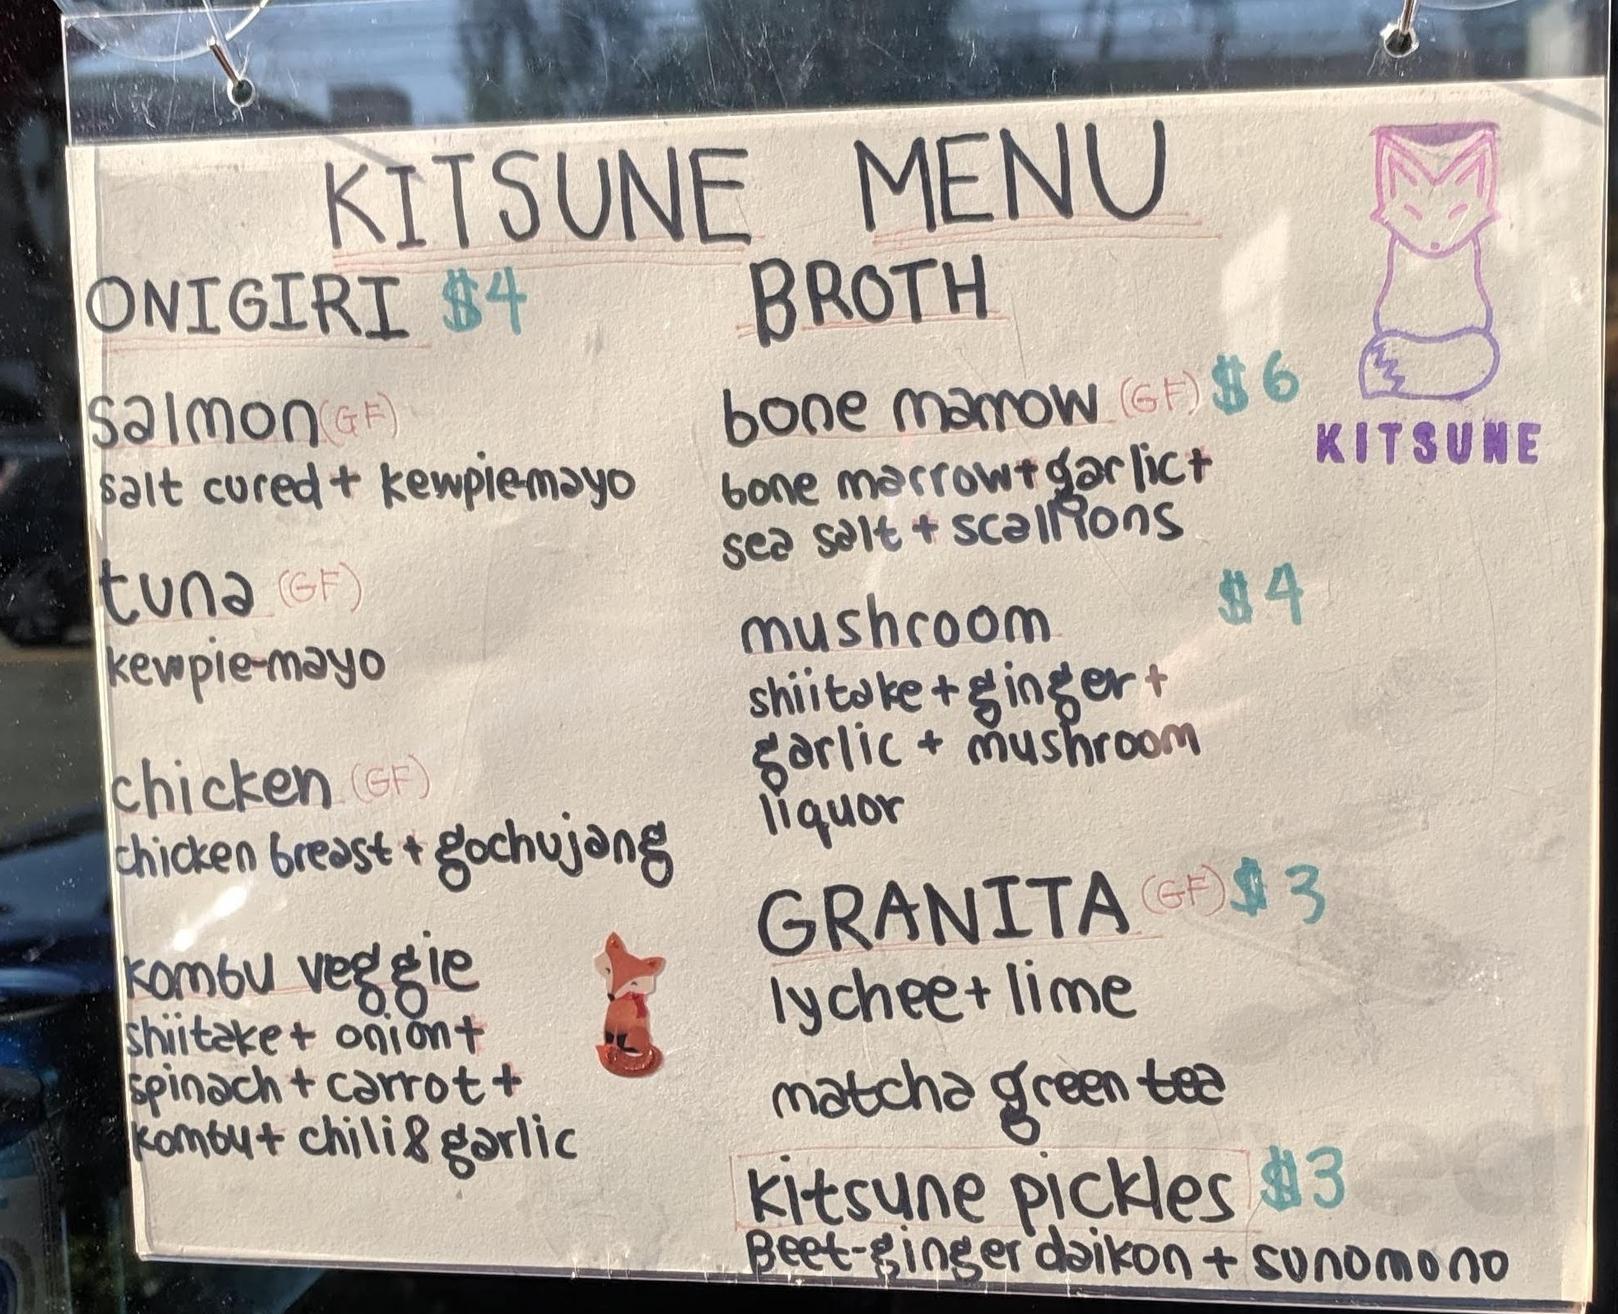 KITSUNE MENU
ONIGIRI $4
salmon (GF)
salt cured + kewpie-mayo
tuna (GF)
kewpie-mayo
chicken (GF)
chicken breast + gochujang
kombu veggie
shiitake + onion +
spinach + carrot +
kombu + chili & garlic
BROTH
bone marrow (GF) $6
bone marrow + garlic +
sea salt + scallions
mushroom $4
shiitake + ginger +
garlic + mushroom
liquor
GRANITA (GF) $3
lychee + lime
matcha green tea
kitsune pickles $3
Beet-ginger daikon + sunomono
KITSUNE